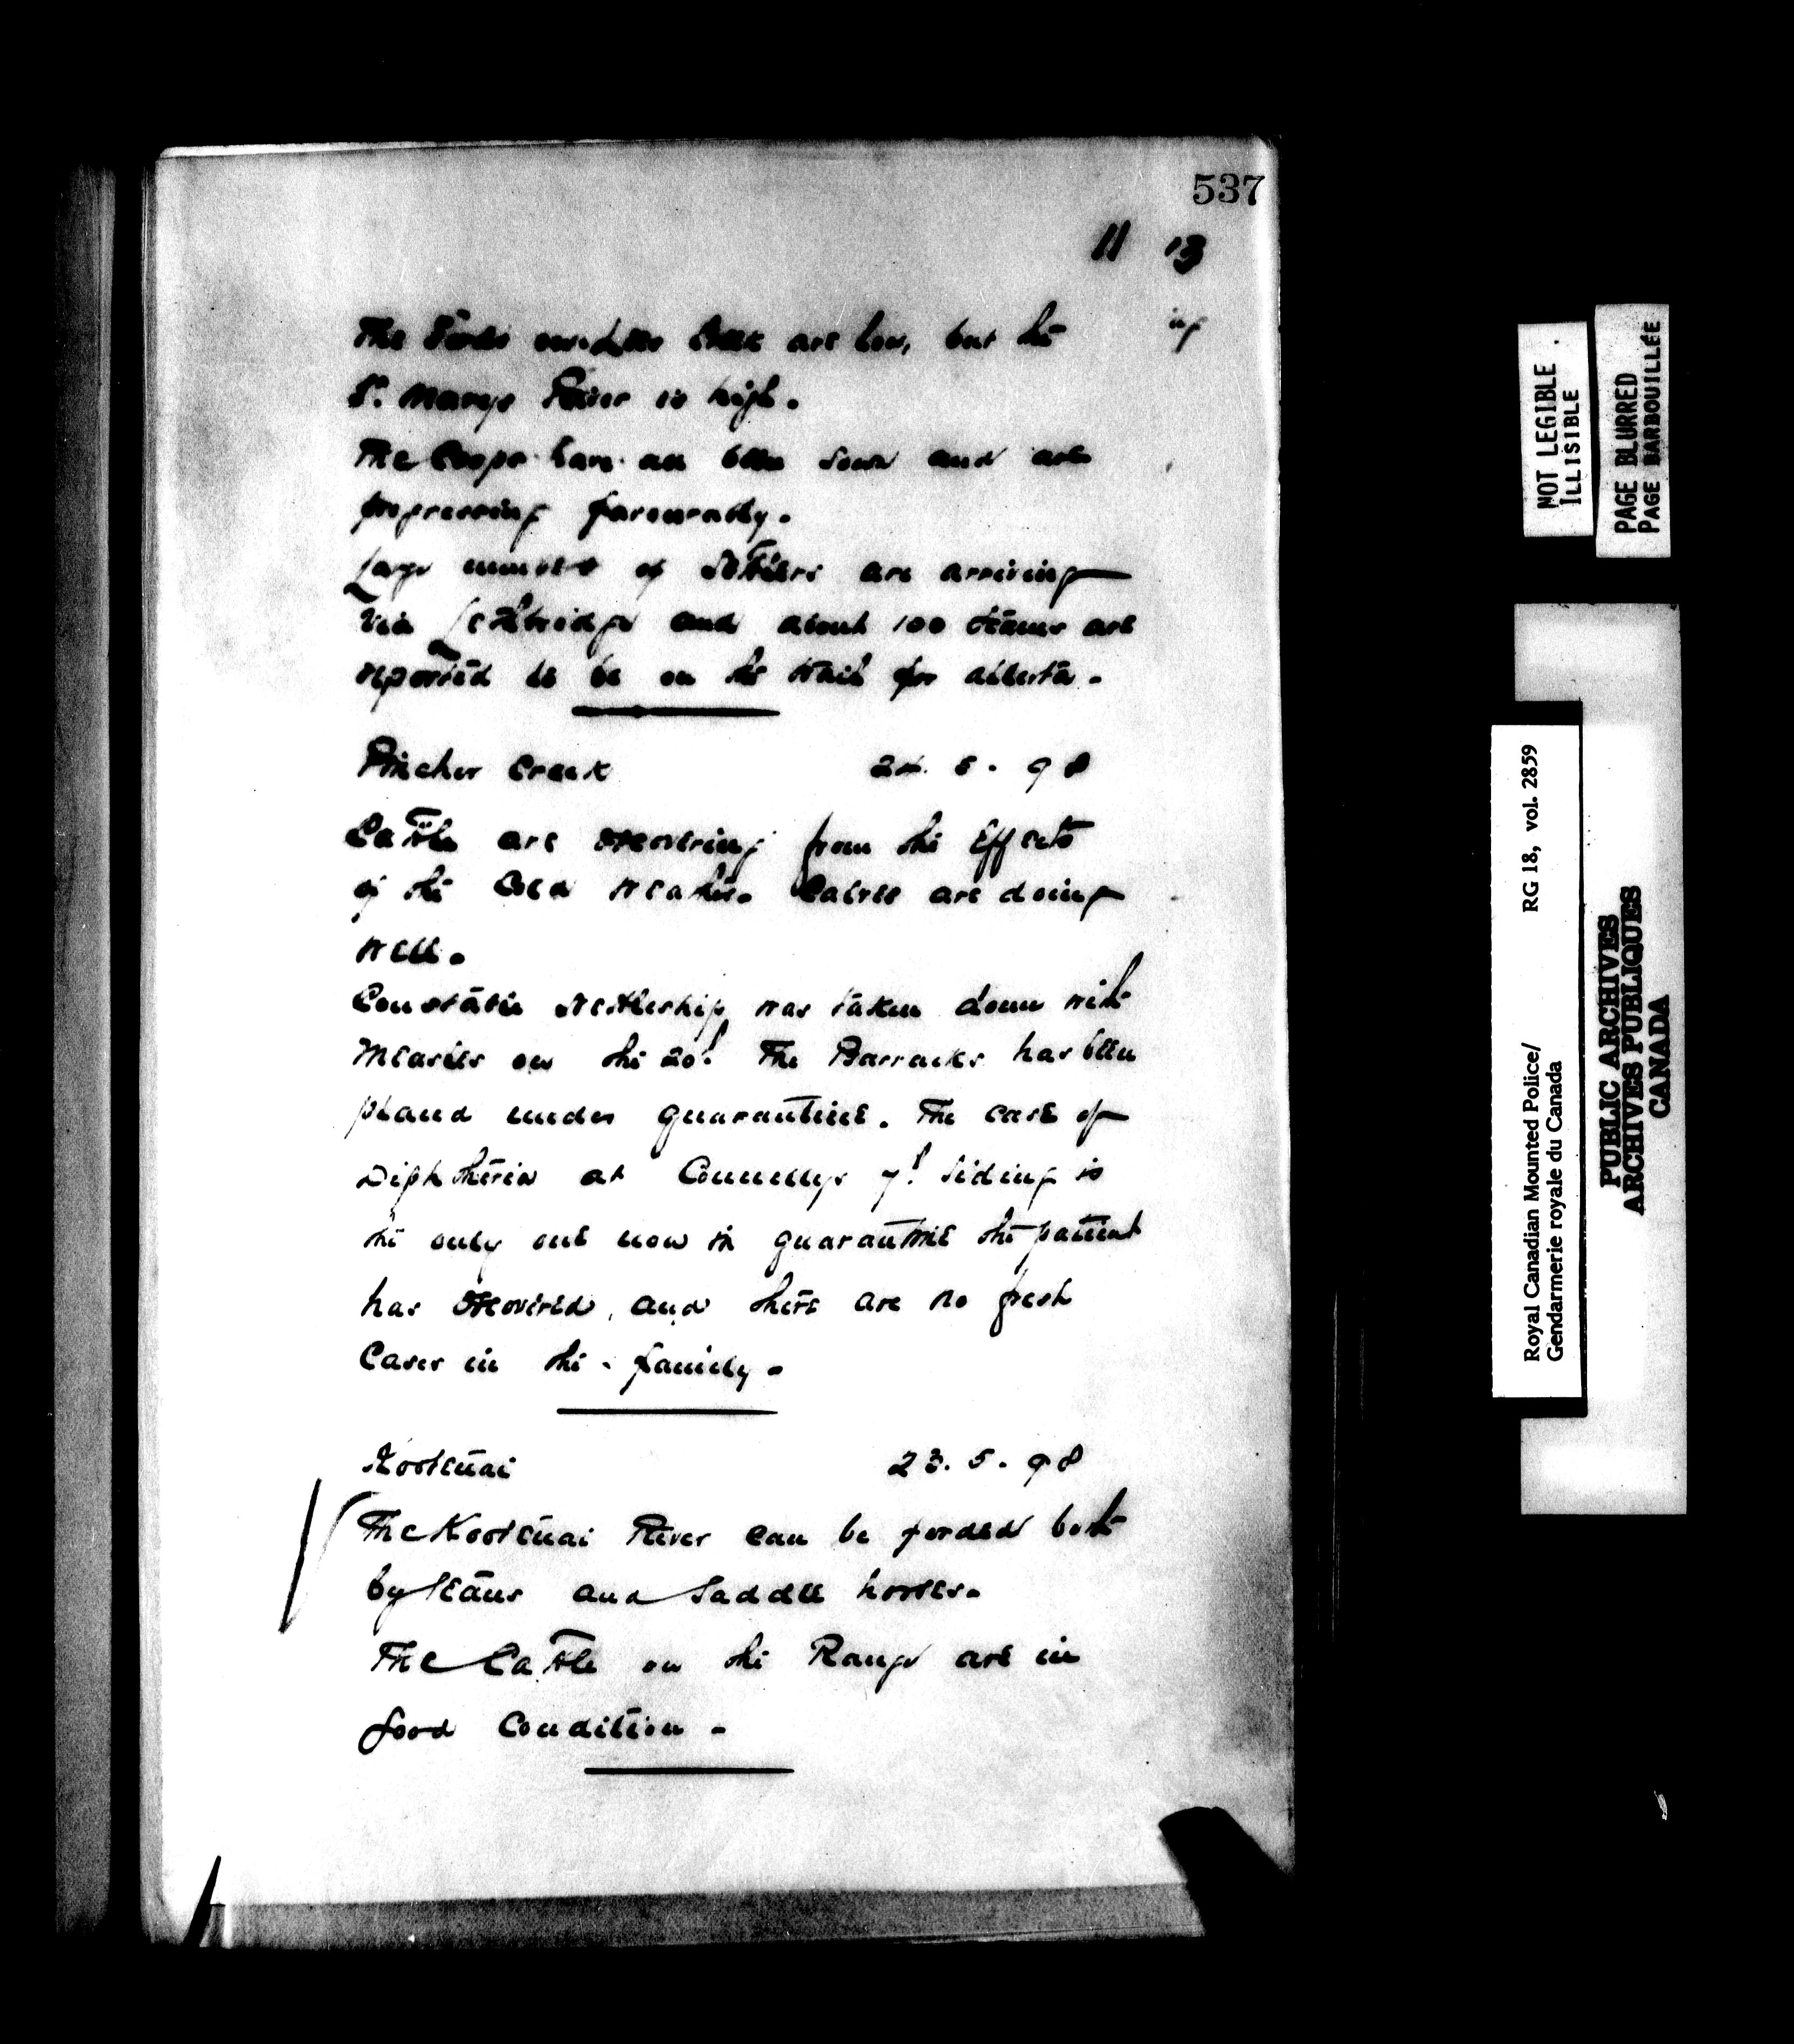 537
11 13
The Fords on Lees Creek are low, but the
St. Marys River is high.
The Crops have all been sown and are
progressing favourably.
Large numbers of Settlers are arriving
via Lethbridge and about 100 teams are
reported to be on the trail for Alberta.
Pincher Creek 24. 5. 98
Cattle are recovering from the Effects
of the Cold weather. Calves are doing
well.
Constable Nettleship was taken down with
Measles on the 20t. The Barracks has been
placed under quarantine. The case of
Diphtheria at Connellys 7t. Siding is
the only one now in quarantine the patient
has recovered, and there are no fresh
Cases in the family.
Kootenai 23. 5. 98
The Kootenai River can be forded both
by teams and Saddle horses.
The Cattle on the Range are in
good Condition.
NOT LEGIBLE
ILLISIBLE
PAGE BLURRED
PAGE BARBOUILLÉE
Royal Canadian Mounted Police/ RG 18, vol. 2859
Gendarmerie royale du Canada
PUBLIC ARCHIVES
ARCHIVES PUBLIQUES
CANADA